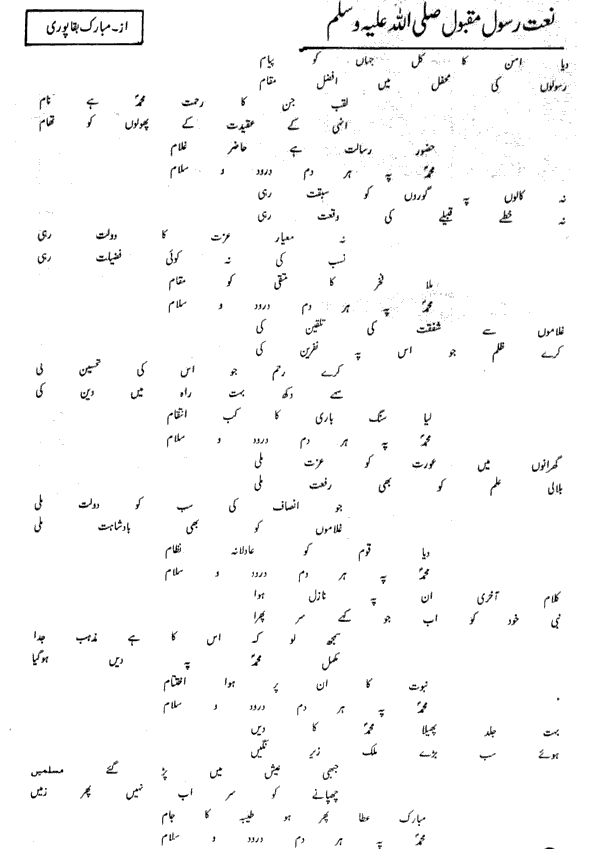 نعت رسول مقبول صلی اللہ علیہ وسلم
از۔ مبارک بقاپوری
دیا امن کا کل جہاں کو پیام
رسولوں کی محفل میں افضل مقام
لقب جن کا رحمت محمدؐ ہے نام
انہی کے عقیدت کے پھولوں کو تھام
حضور رسالت ہے حاضر غلام
محمدؐ پہ ہر دم درود و سلام
نہ کالوں پہ گوروں کو سبقت رہی
نہ خطے قبیلے کی وقعت رہی
نہ معیار عزت کا دولت رہی
نسب کی نہ کوئی فضیلت رہی
ملا فخر کا متقی کو مقام
محمدؐ پہ ہر دم درود و سلام
غلاموں سے شفقت کی تلقین کی
کرے ظلم جو اس پہ نفرین کی
کرے رحم جو اس کی تحسین لی
سہے دکھ بہت راہ میں دین کی
لیا سنگ باری کا کب انتقام
محمدؐ پہ ہر دم درود و سلام
گھرانوں میں عورت کو عزت ملی
بلالی علم کو بھی رفعت ملی
جو انصاف کی سب کو دولت ملی
غلاموں کو بھی بادشاہت ملی
دیا قوم کو عادلانہ نظام
محمدؐ پہ ہر دم درود و سلام
کلام آخری ان پہ نازل ہوا
نبی خود کو اب جو کہے سر پھرا
سمجھ لو کہ اس کا ہے مذہب جدا
مکمل محمدؐ پہ دیں ہوگیا
نبوت کا ان پر ہوا اختتام
محمدؐ پہ ہر دم درود و سلام
بہت جلد پھیلا محمدؐ کا دیں
ہوئے سب بڑے ملک زیر نگیں
جبھی عیش میں پڑ گئے مسلمیں
چھپانے کو سر اب نہیں پھر زمیں
مبارک عطا پھر ہو طیبہ کا جام
محمدؐ پہ ہر دم درود و سلام